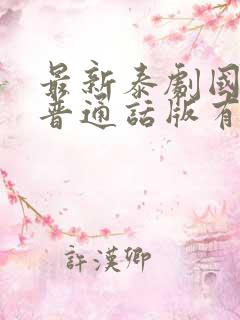 最新泰劇國
普通話版有
許漢卿